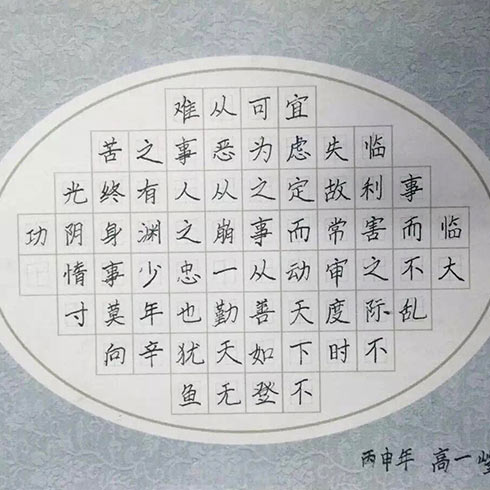 临大
事而不乱
临利害之际不
失故常审度时
宜虑定而动天下不
可为之事从善如登
从恶从崩一勤天无
难事人之忠也犹鱼
之有渊少年辛
苦终身事莫向
光阴惰寸
功
丙申年 高一